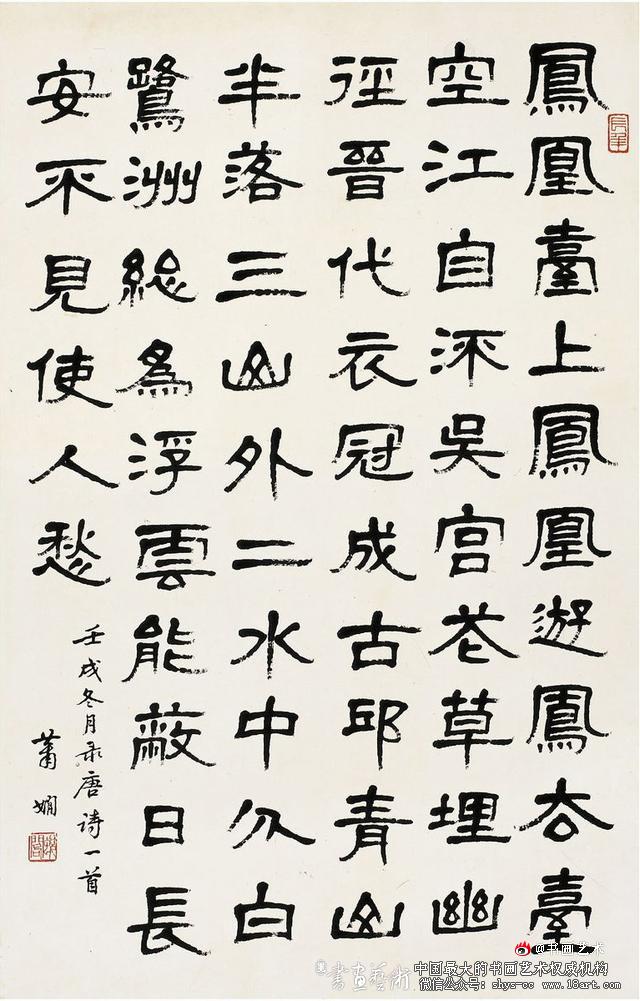 鳳凰臺上鳳凰遊鳳去臺
空江自流吳宮花草埋幽
徑晉代衣冠成古邱青山
半落三山外二水中分白
鷺洲緫爲浮雲能蔽日長
安不見使人愁
壬戌冬月录唐诗一首
蕭嫻
@书画艺术
書畫藝術
中国最大的书画艺术权威机构
微信公众号：shys-cc www.18art.com